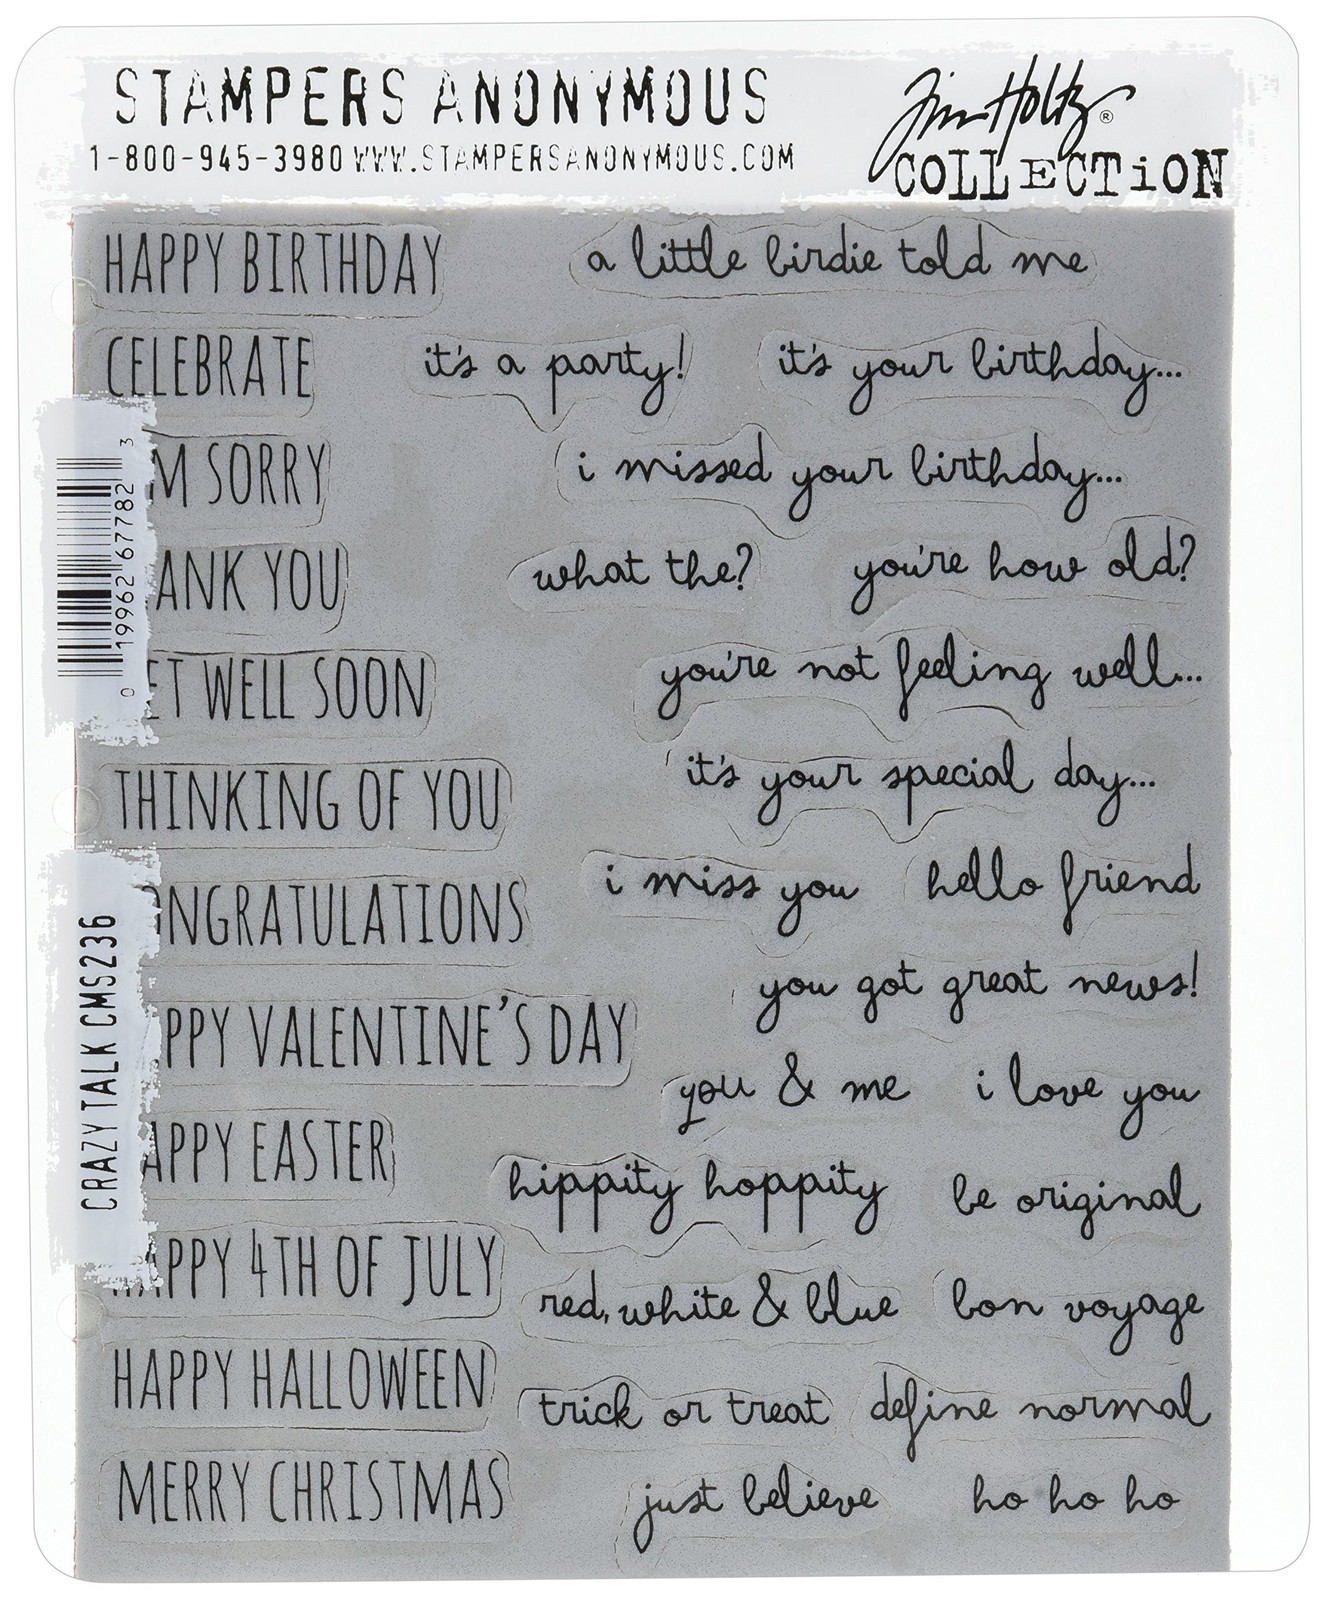 STAMPERS ANONYMOUS
1-800-945-3980 WWW.STAMPERSANONYMOUS.COM
Tim Holtz ®
COLLECTiON
HAPPY BIRTHDAY
a little birdie told me
CELEBRATE
it's a party!
it's your birthday...
M SORRY
i missed your birthday...
ANK YOU
what the?
you're how old?
ET WELL SOON
you're not feeling well...
THINKING OF YOU
it's your special day...
ONGRATULATIONS
i miss you
hello friend
you got great news!
PPY VALENTINE'S DAY
you & me
i love you
APPY EASTER
hippity hoppity
be original
APPY 4TH OF JULY
red, white & blue
bon voyage
HAPPY HALLOWEEN
trick or treat
define normal
MERRY CHRISTMAS
just believe
ho ho ho
0 19962 67782 3
CRAZY TALK CMS236